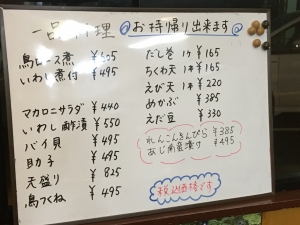 一品料理 お持帰り出来ます
鳥レース煮 ¥605
いわし煮付 ¥495
マカロニサラダ ¥440
いわし酢漬 ¥550
バイ貝 ¥495
助子 ¥495
天盛り ¥825
鳥つくね ¥495
だし巻 1ヶ ¥165
ちくわ天 1本 ¥165
えび天 1本 ¥220
めかぶ ¥385
えだ豆 ¥330
れんこんきんぴら ¥385
あじ南蛮漬付 ¥495
税込価格です